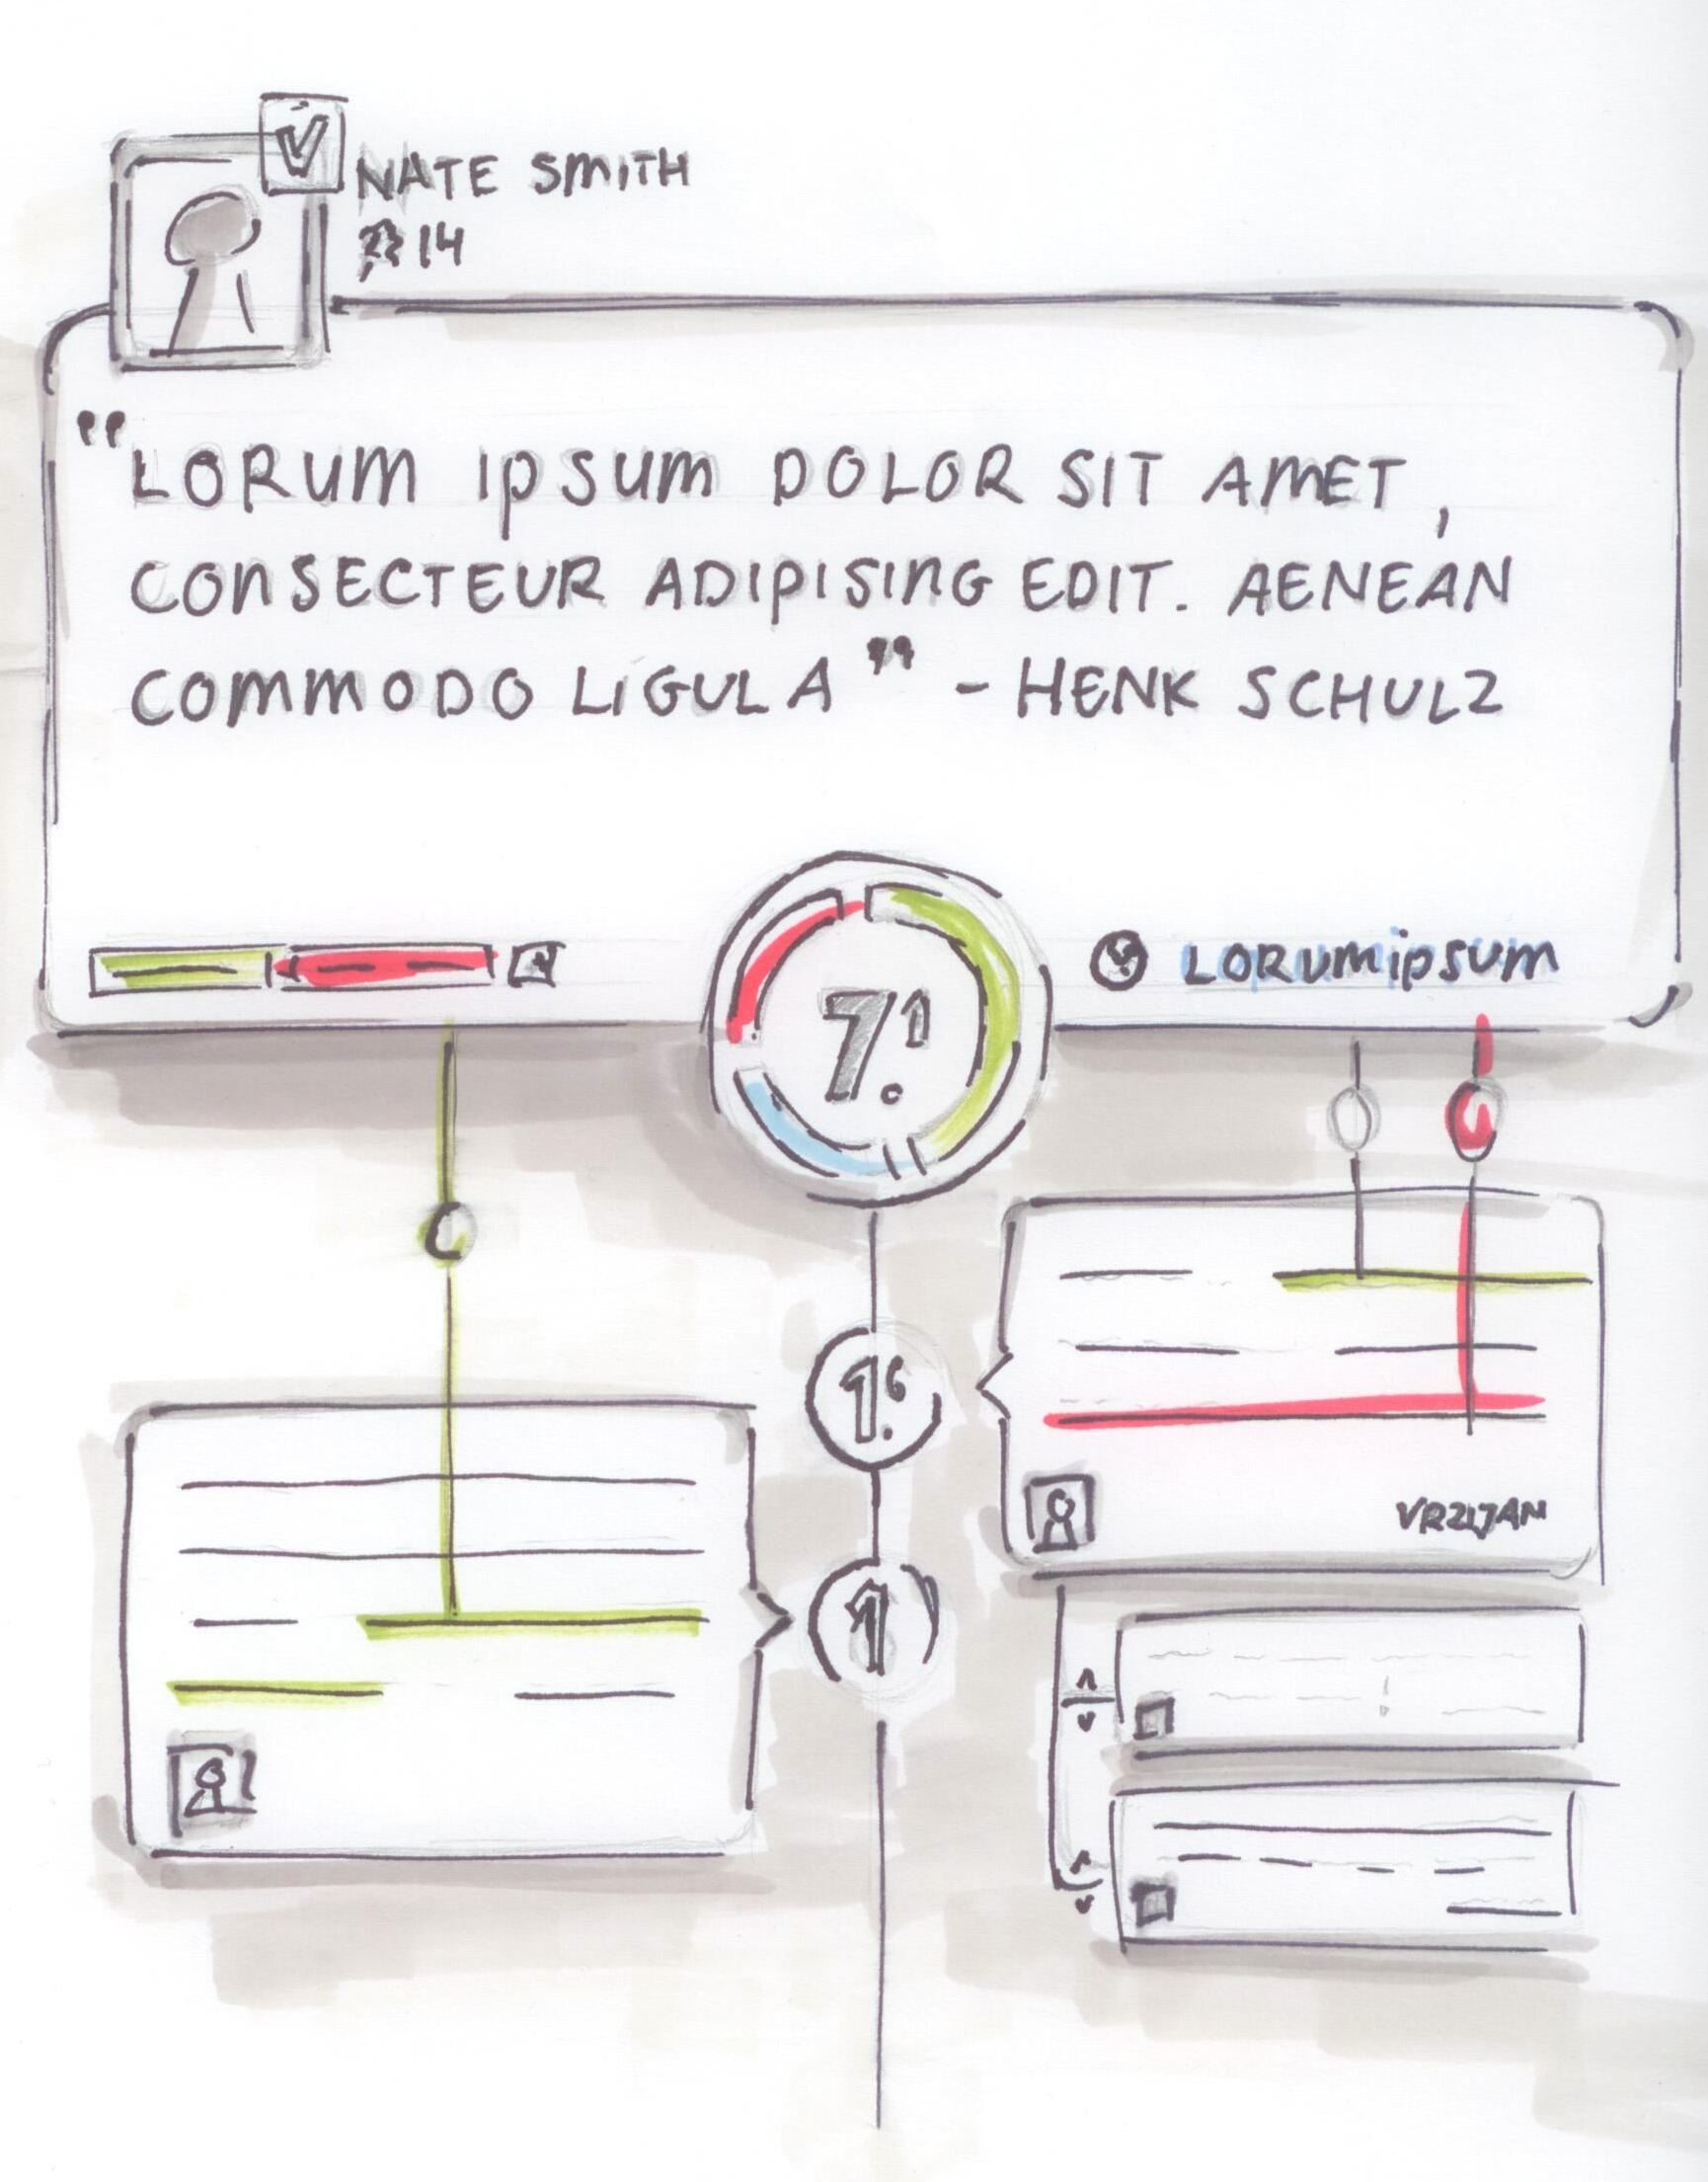 NATE SMITH
14
"LORUM IPSUM DOLOR SIT AMET,
CONSECTEUR ADIPISING EDIT. AENEAN
COMMODO LIGULA" - HENK SCHULZ
7.1
LORUMIPSUM
1.6
1
VRZIJAN